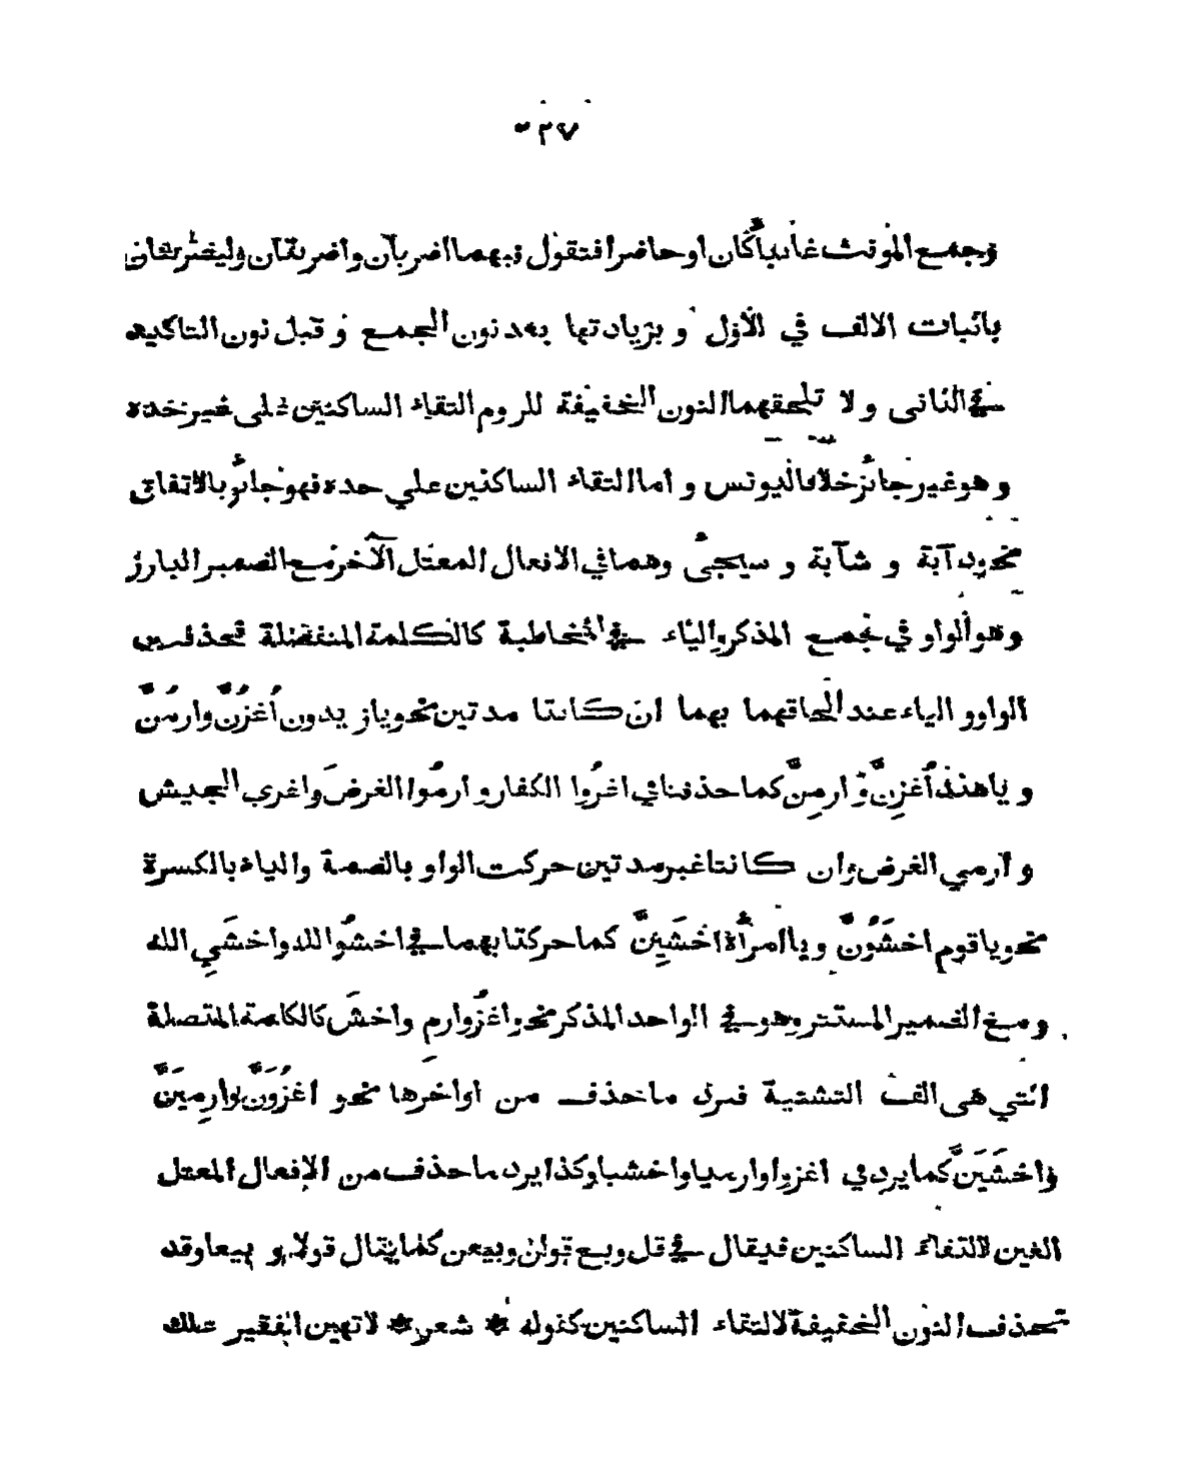 ٢٧
وجمع المونث غائبا كان او حاضرا فتقول فيهما اضربآن واضربنآن وليضربنان
باثبات الالف في الاول و بزيادتها بعد نون الجمع و قبل نون التاكيد
في الثانى و لا تلحقهما النون الخفيفة للزوم التقاء الساكنين على غير حده
وهو غير جائز خلافا ليونس و اما التقاء الساكنين علي حده فهو جائز بالاتفاق
نحو دآبة و شآبة و سيجئ وهما في الافعال المعتل الآخر مع الضمير البارز
وهو الواو في جمع المذكر والياء في المخاطبة كالكلمة المنفصلة تحذف من
الواو و الياء عند الحاقهما بهما ان كانتا مدتين نحو يا زيدون أغزُنَّ وارمُنَّ
و يا هند أغزِنَّ و ارمِنَّ كما حذفنا في اغزُوا الكفار و ارمُوا الغرضَ واغزي الجيش
و آرمي الغرض وان كانتا غير مدتين حركت الواو بالضمة والياء بالكسرة
نحو يا قوم اخشَوُنَّ و يا امرأة اخشَيِنَّ كما حركتا بهما في اخشَوُا الله واخشَيِ الله
و مع الضمير المستتر وهو في الواحد المذكر نحو اغزُ وارمِ واخشَ كالكلمة المتصلة
التي هى الف التثنية فيرد ما حذف من اواخرها نحو اغزُوَنَّ وارمِيَنَّ
واخشَيَنَّ كما يرد في اغزوا وارميا واخشيا وكذا يرد ما حذف من الافعال المعتل
العين لالتقاء الساكنين فيقال في قل وبع قولن وبيعن كما يقال قولا و بيعا وقد
تحذف النون الخفيفة لالتقاء الساكنين كقوله * شعر * لا تهين الفقير علك